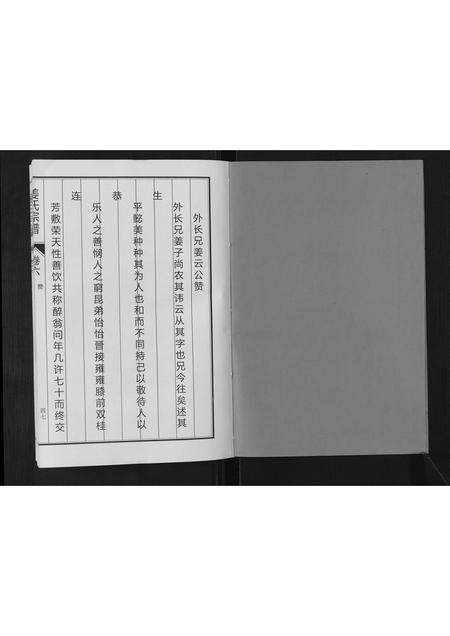 外长兄姜云公赞
外长兄姜子尚农其讳云从其字也兄今往矣述其生
平懿美种种其为人也和而不同持己以敬待人以恭
乐人之善悯人之穷昆弟怡怡晋接雍雍膝前双桂连
芳敷荣天性善饮共称醉翁问年几许七十而终交
姜氏宗谱
卷六
赞
四七